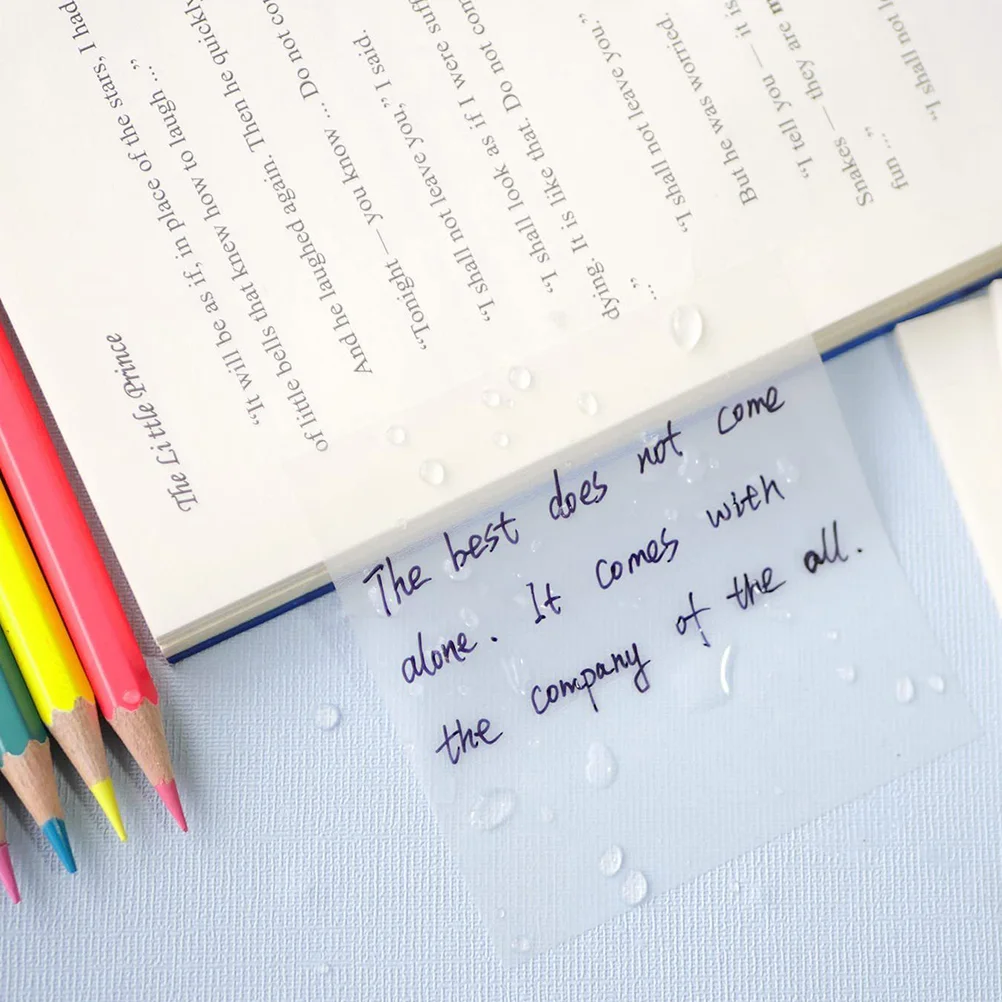 The Little Prince
"It will be as if, in place of the stars, I had
of little bells that knew how to laugh ..."
And he laughed again. Then he quickly
"Tonight — you know ... Do not co
"I shall not leave you," I said.
"I shall look as if I were suff
dying. It is like that. Do not com
..."
"I shall not leave you."
But he was worried.
"I tell you — it is
Snakes — they are m
fun ..."
"I shall not l
The best does not come
alone. It comes with
the company of the all.